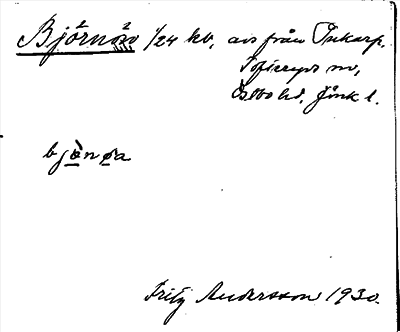 Björnön 1/24 kv, avs från Inkarp,
Tofteryds sn,
Östbo hd. Jönk l.
bjö̀nøa
Fritz Andersson 1930.